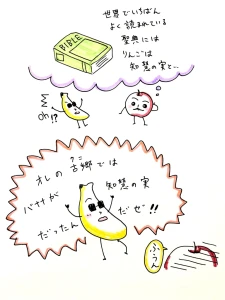 世界でいちばん
よく読まれている
聖典には
りんごは
知恵の実と…
BIBLE
オレの古郷では
バナナが
知恵の実
だったんだぜ!!
ふぅん